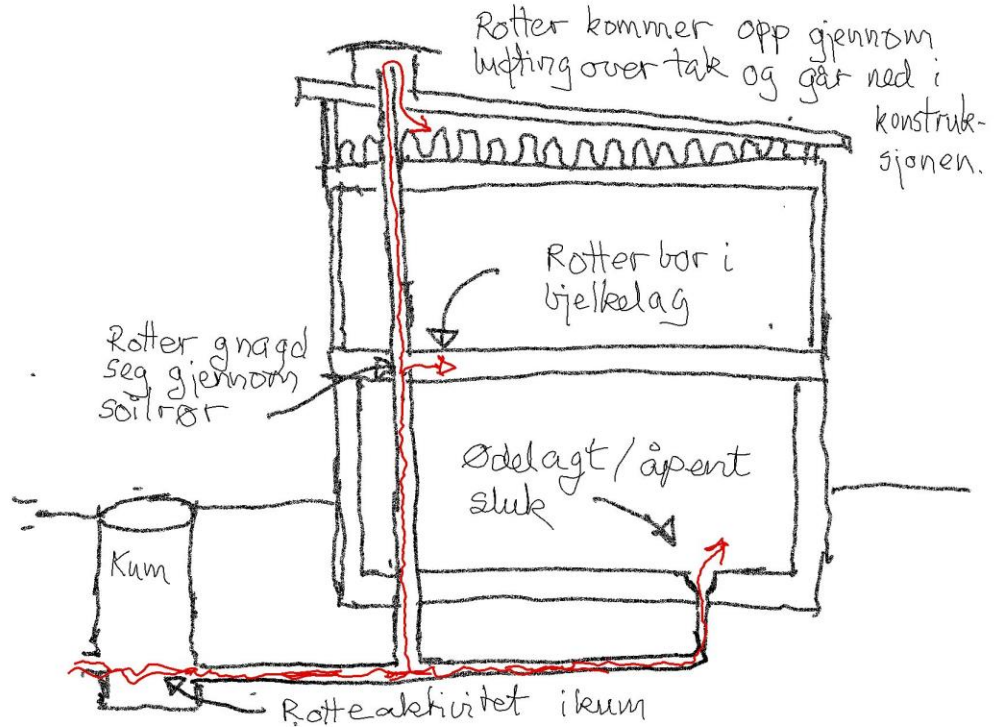 Rotter kommer opp gjennom
lufting over tak og går ned i
konstruk-
sjonen.
Rotter bor i
bjelkelag
Rotter gnagd
seg gjennom
soilrør
Ødelagt/åpent
sluk
Kum
Rotteaktivitet i kum